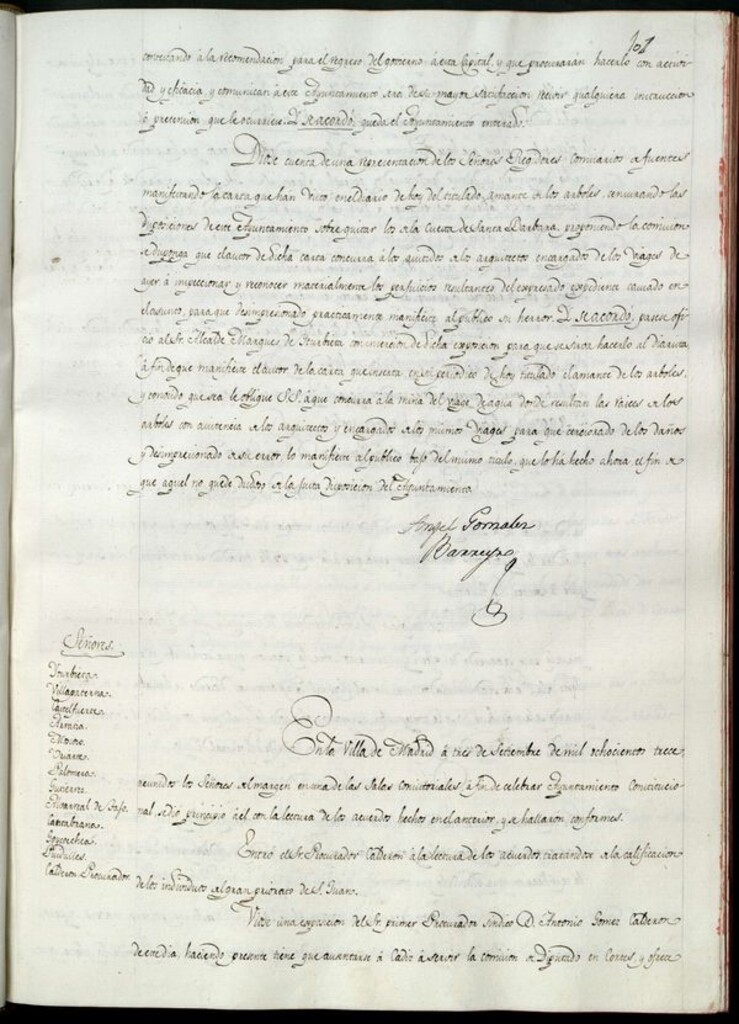 101
contestando á la recomendacion para el regreso del govierno á esta Capital, y que procurarán hacerlo con activi-
dad y eficacia, y comunican á este Ayuntamiento sera de su mayor satisfaccion recivir qualquiera instruccion
ó pretension que le ocurriese. Y se acordó, queda el Ayuntamiento enterado.
Diose cuenta de una representacion de los Señores Regidores Comisarios de fuentes
manifestando la carta que han visto en el diario de hoy del titulado, amante de los arboles, censurando las
disposiciones de este Ayuntamiento sobre quitar los de la Cuesta de Santa Barbara, proponiendo la comision
se disponga que el autor de dicha carta concurra á los quitados de los arquitectos encargados de los Viages de
á inspeccionar y reconocer materialmente los perjuicios resultantes del expresado expediente causado en
el asunto, para que desimpresionado practicamente manifieste al publico su herror. Y se acordó, pasese ofi-
cio al Sr. Alcalde Marques de Iturbieta con insercion de dicha exposicion para que se sirva hacerlo al Diarista
á fin de que manifieste el autor de la carta que inserta en su periodico de hoy titulado el amante de los arboles,
y constando que sea le obligue S.S. á que concurra á la mina del viage de agua donde resultan las raices de los
arboles con asistencia de los arquitectos y encargados de los mismos Viages para que cerciorado de los daños
y desimpresionado de su error, lo manifieste al publico bajo del mismo titulo, que lo há hecho ahora el fin de
que aquel no quede dudoso de la justa disposicion del Ayuntamiento
Angel Gonzalez
Barreyro
Señores.
Iturbieta.
Villapaterna.
Castelfuerte.
Arraña.
Duarte.
Palomera.
Gutierrez.
Cantabrana.
Goycoechea.
Calderon Procurador.
En la Villa de Madrid á tres de Setiembre de mil ochocientos trece,
reunidos los Señores del margen en una de las Salas Consistoriales, á fin de celebrar Ayuntamiento Constitucio-
nal se dió principio á él con la lectura de los acuerdos hechos en el anterior, y se hallaron conformes.
Entró el Sr. Procurador Calderon á la lectura de los acuerdos, tratandose de la calificacion
de los individuos del gran priorato de S. Juan.
Viose una exposicion del Sr. primer Procurador sindico D. Antonio Gomez Calderon
de este dia, haciendo presente tiene que ausentarse á Cadiz á servir la comision de Diputado en Cortes, y ofrece